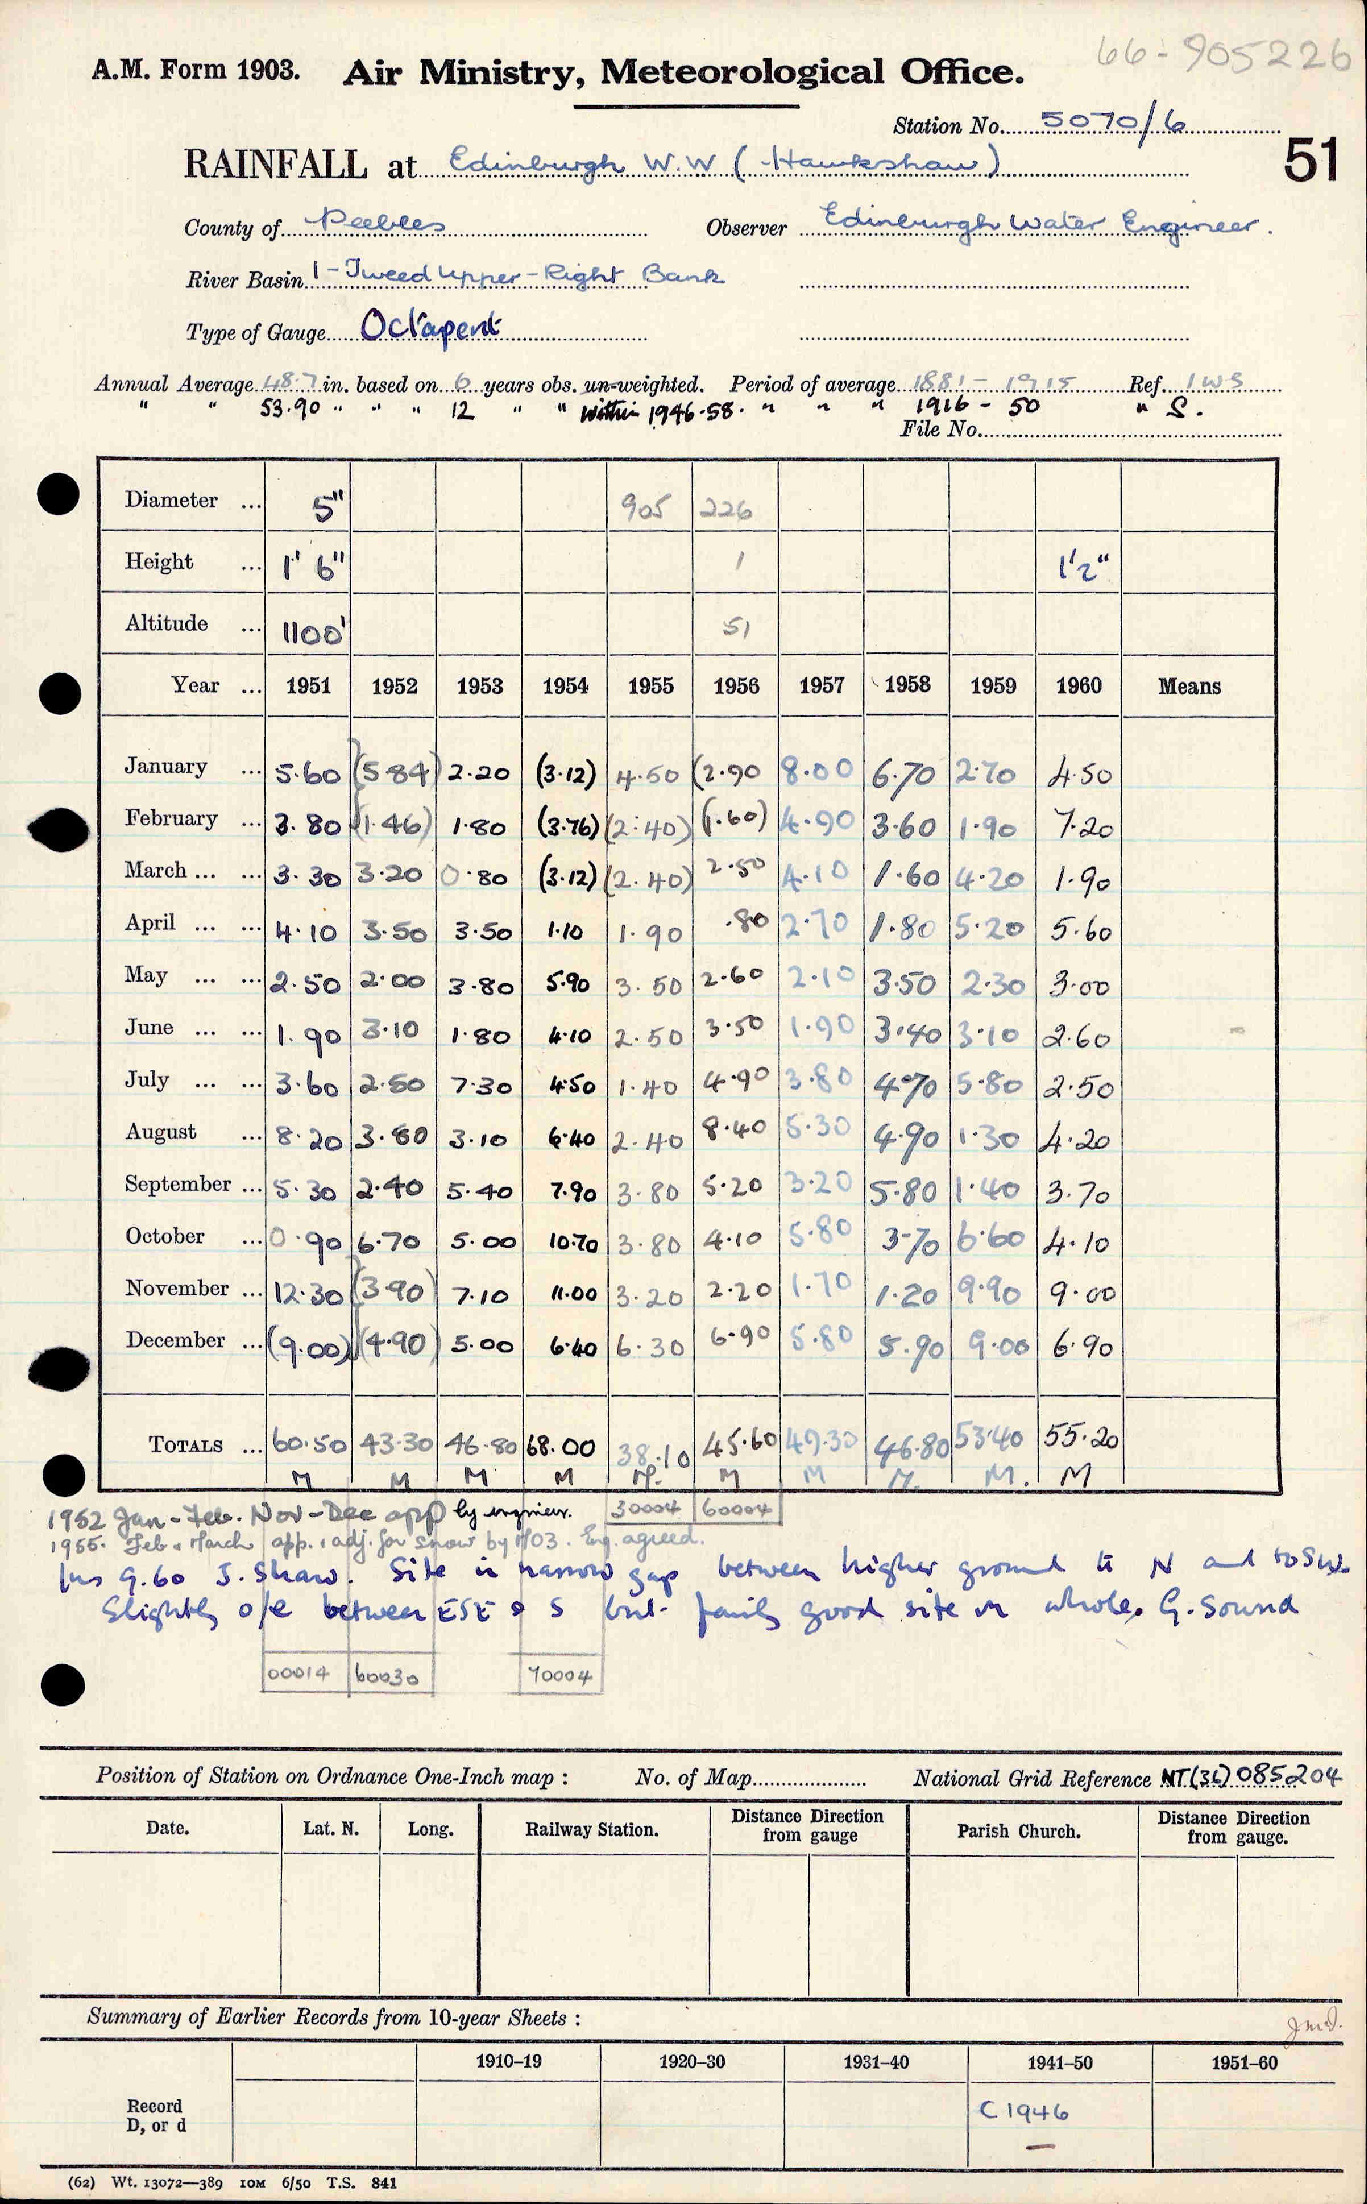 66-905226
A.M. Form 1903. Air Ministry, Meteorological Office.
Station No. 5070/6
51
RAINFALL at Edinburgh W.W (Hawkshaw)
County of Peebles Observer Edinburgh Water Engineer.
River Basin 1 - Tweed Upper - Right Bank
Type of Gauge Octapent
Annual Average 48.7 in. based on 6 years obs. un-weighted. Period of average 1881 - 1915 Ref. IWS
" " 53.90 " " " 12 " " within 1946-58. " " " 1916 - 50 " S.
File No.
Diameter ... 5" 905 226
Height ... 1' 6" 1 1'2"
Altitude ... 1100' 51
Year ... 1951 1952 1953 1954 1955 1956 1957 1958 1959 1960 Means
January ... 5.60 (5.84) 2.20 (3.12) 4.50 (2.90 8.00 6.70 2.70 4.50
February ... 3.80 (1.46) 1.80 (3.76) (2.40) (1.60) 4.90 3.60 1.90 7.20
March ... ... 3.30 3.20 0.80 (3.12) (2.40) 2.50 4.10 1.60 4.20 1.90
April ... ... 4.10 3.50 3.50 1.10 1.90 .80 2.70 1.80 5.20 5.60
May ... ... 2.50 2.00 3.80 5.90 3.50 2.60 2.10 3.50 2.30 3.00
June ... ... 1.90 3.10 1.80 4.10 2.50 3.50 1.90 3.40 3.10 2.60
July ... ... 3.60 2.50 7.30 4.50 1.40 4.90 3.80 4.70 5.80 2.50
August ... 8.20 3.80 3.10 6.40 2.40 8.40 5.30 4.90 1.30 4.20
September ... 5.30 2.40 5.40 7.90 3.80 5.20 3.20 5.80 1.40 3.70
October ... 0.90 6.70 5.00 10.70 3.80 4.10 5.80 3.70 6.60 4.10
November ... 12.30 (3.90) 7.10 11.00 3.20 2.20 1.70 1.20 9.90 9.00
December ... (9.00) (4.90) 5.00 6.40 6.30 6.90 5.80 5.90 9.00 6.90
TOTALS ... 60.50 43.30 46.80 68.00 38.10 45.60 49.30 46.80 53.40 55.20
M M M M M. M M M. M. M
1952 Jan - Feb. Nov - Dec app by engineer. 30004 60004
1955. Feb & March app. & adj. for snow by MO3. Eng. agreed.
Ins 9.60 J. Shaw. Site in narrow gap between higher ground to N and to SW.
Slightly o/e between ESE & S but fairly good site on whole. G. Sound
00014 60030 70004
Position of Station on Ordnance One-Inch map : No. of Map National Grid Reference NT(36) 085204
Date. Lat. N. Long. Railway Station. Distance Direction from gauge Parish Church. Distance Direction from gauge.
Summary of Earlier Records from 10-year Sheets :
1910–19 1920–30 1931–40 1941–50 1951–60
Record
D, or d
C 1946
(62) Wt. 13072—389 10M 6/50 T.S. 841